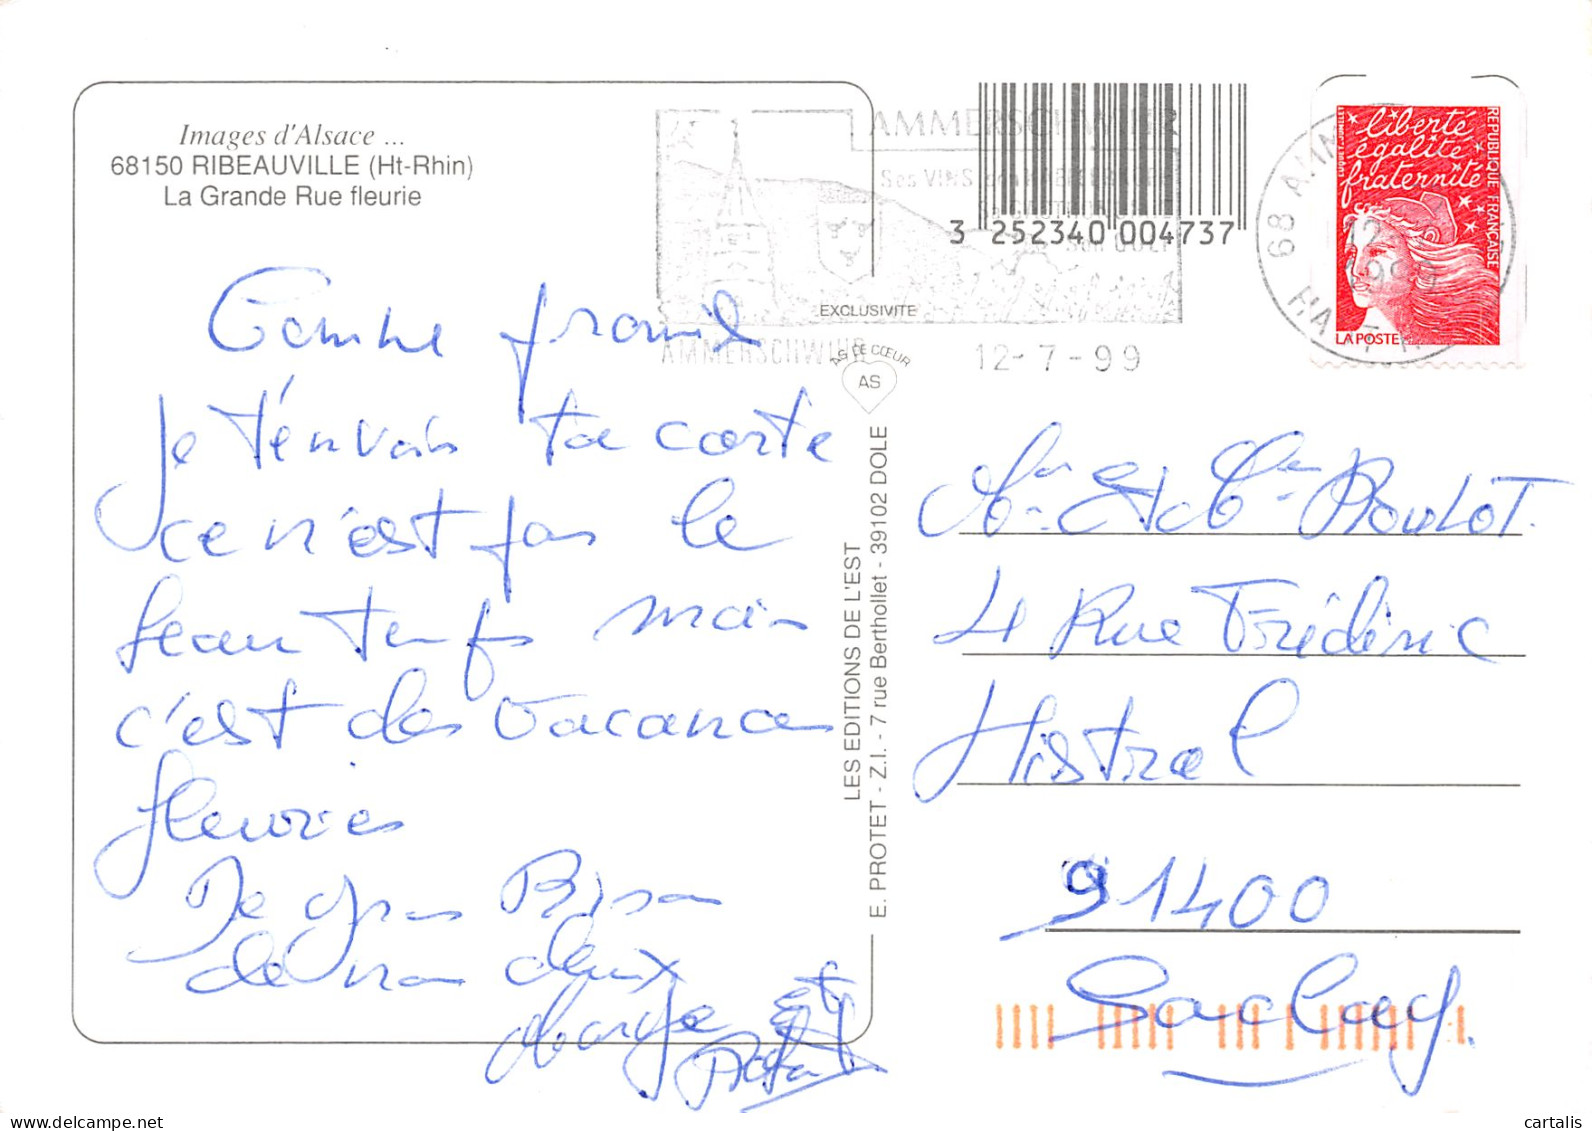 Images d'Alsace ...
68150 RIBEAUVILLE (Ht-Rhin)
La Grande Rue fleurie
je t'envois ta carte
ce n'est pas le
beau temps mais
c'est des vacances
fleuries
De gros Bisou
de nous deux
Marge et
AMMERSCHWIHR
Ses VINS
Son GOLF
AMMERSCHWIHR
12-7-99
3 252340 004737
EXCLUSIVITE
AS DE CŒUR
AS
LES EDITIONS DE L'EST
E. PROTET - Z.I. - 7 rue Berthollet - 39102 DOLE
liberté
égalité
fraternité
REPUBLIQUE FRANÇAISE
LA POSTE
Mr Et Me Boulot.
4 Rue Frédéric
Mistral
91400
Saclay.
cartalis